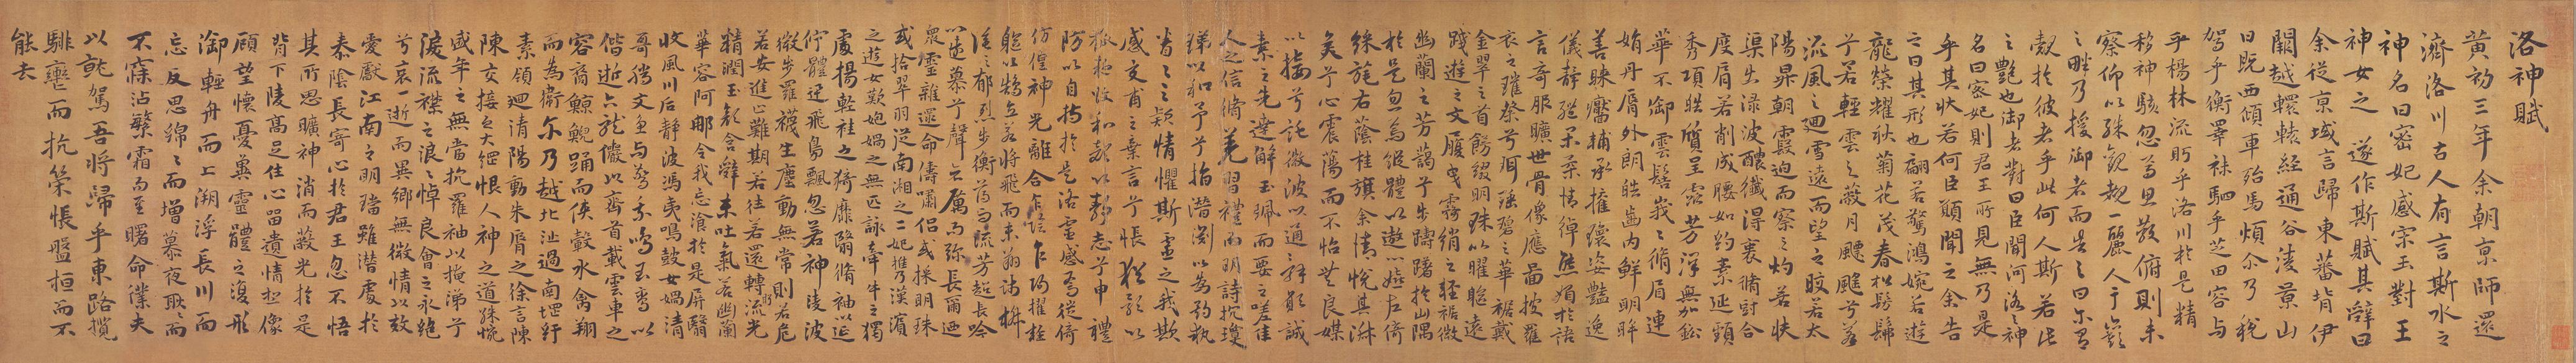 洛神賦
黃初三年余朝京師還
濟洛川古人有言斯水之
神名曰宓妃感宋玉對王
神女之 遂作斯賦其辭曰
余從京域言歸東藩背伊
闕越轘轅經通谷淩景山
日既西傾車殆馬煩尒乃稅
駕乎蘅睪秣駟乎芝田容与
乎楊林流眄乎洛川於是精
移神駭忽焉思散俯則未
察仰以殊觀覩一麗人于巖
之畔乃援御者而告之曰尔有
覿於彼者乎此何人斯若此
之豔也御者對曰臣聞河洛神
名曰宓妃則君王所見無乃是
乎其狀若何臣願聞之余告
之曰其形也翩若驚鴻婉若遊
龍榮耀秋菊花茂春松髣髴
兮若輕雲之蔽月飄颻兮若
流風之迴雪遠而望之皎若太
陽昇朝霞迫而察之灼若芙
渠出淥波醲纖得衷脩短合
度肩若削成腰如約素延頸
秀項皓質呈露芳澤無加鉛
華不御雲髻峩峩脩眉連
娟丹脣外朗皓齒內鮮明眸
善睞靨輔承權瓌姿豔逸
儀靜體閑柔情綽態媚於語
言奇服曠世骨像應圖披羅
衣之璀粲兮珥瑤碧之華裾戴
金翠之首飾綴明珠以曜軀遠
踐遊之文履曳霧綃之輕裾微
幽蘭之芳藹兮步踟躕於山隅
於是忽焉縱體以遨以嬉左倚
綵旄右蔭桂旗余情悅其淑
美兮心震蕩而不怡無良媒
以接兮託微波以通辭願誠
素之先達解玉珮而要之嗟佳
人之信脩羌習禮而明詩抗瓊
珶以和予兮指潛淵以為期執
眷之之款情懼斯靈之我欺
感交甫之棄言兮悵猶豫以
狐疑收和顏以靜志兮申禮
防以自持於是洛靈感焉徙倚
仿偟神光離合乍陰乍陽擢輕
軀以鶴立若將飛而未翔踐椒
塗之郁烈步蘅薄而流芳超長吟
以遠慕兮聲哀厲而弥長爾迺
眾靈雜遝命儔嘯侶或採明珠
或拾翠羽從南湘之二妃攜漢濱
之遊女歎匏媧之無匹詠牽牛之獨
處揚輕袿之猗靡翳脩袖以延
佇體迅飛鳧飄忽若神陵波
微步羅襪生塵動無常則若危
若安進止難期若往若還轉眄流光
精潤玉顏含辭未吐氣若幽蘭
華容阿那令我忘湌於是屏翳
收風川后靜波馮夷鳴鼓女媧清
哥騰文魚以警乘鳴玉鸞以
偕逝六龍儼以齊首載雲車之
容裔鯨鯢踊而俠轂水禽翔
而為衛尔乃越北沚過南岡紆
素領迴清陽動朱脣以徐言陳
陳交接之大綱恨人神之道殊怨
盛年之無當抗羅袖以掩涕兮
淚流襟之浪浪悼良會之永絕
兮哀一逝而異鄉無微情以效
愛獻江南之明璫雖潛處於
泰陰長寄心於君王忽不悟
其所思曠神消而蔽光於是
背下陵高足往心留遺情想像
顧望懷憂冀靈體之復形
御輕舟而上溯浮長川而
忘反思綿綿而增慕夜耿耿而
不寐沾繁霜而至曙命僕夫
以就駕吾將歸乎東路攬
騑轡而抗策悵盤桓而不
能去